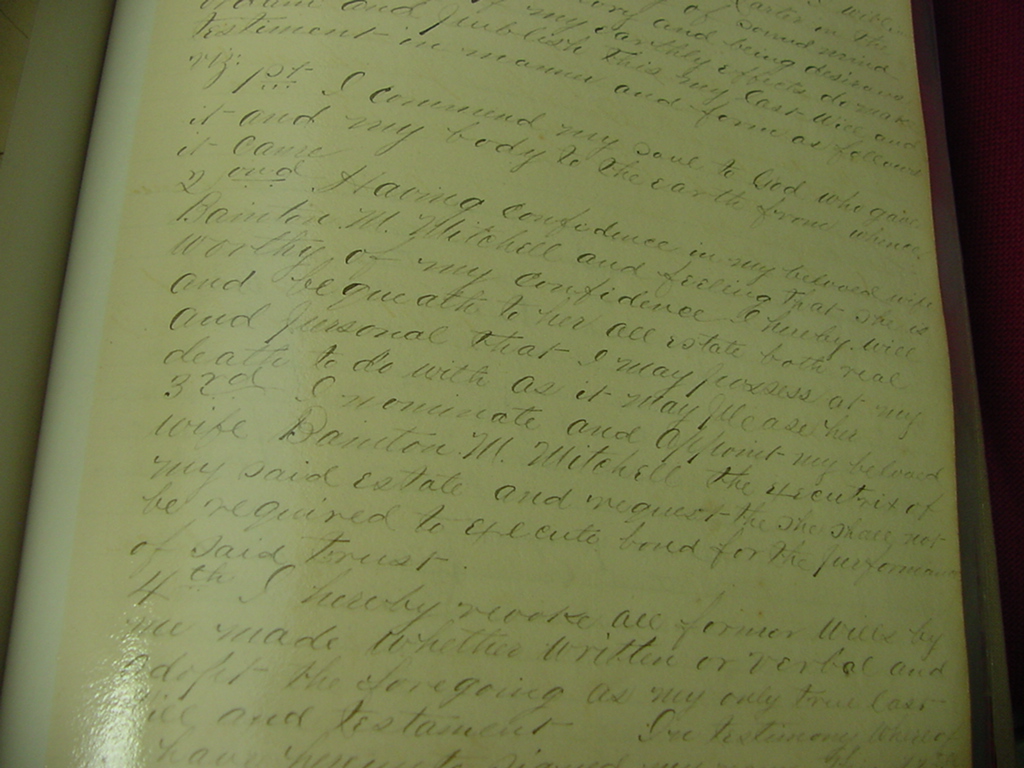 and being desirous
of my earthly effects do make
and publish this my last will and
testament in manner and form as follows
viz:
1st I commend my soul to God who gave
it and my body to the earth from whence
it came
2nd Having confidence in my beloved wife
Bainton M. Mitchell and feeling that she is
worthy of my confidence I hereby will
and bequeath to her all estate both real
and personal that I may possess at my
death to do with as it may please her
3rd I nominate and appoint my beloved
wife Bainton M. Mitchell the executrix of
my said estate and request the she shall not
be required to execute bond for the performance
of said trust.
4th I hereby revoke all former wills by
me made whether written or verbal and
adopt the foregoing as my only true last
will and testament In testimony whereof
have hereunto signed my